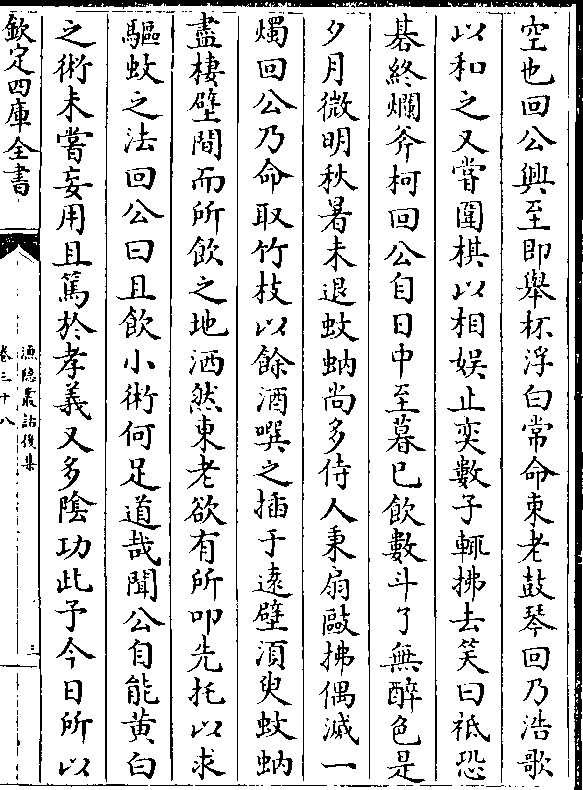 空也回公興至即舉杯浮白常命東老鼓琴回乃浩歌
以和之又嘗圍棋以相娱止奕數子輒拂去笑曰祗恐
棊終爛斧柯回公自日中至暮已飲數斗了無醉色是
夕月微明秋暑未退蚊蚋尚多侍人秉扇敺拂偶滅一
燭回公乃命取竹枝以餘酒噀之插于逺壁湏臾蚊蚋
盡棲壁間而所飲之地洒然東老欲有所叩先托以求
驅蚊之法回公曰且飲小術何足道哉聞公自能黄白
之術未嘗妄用且篤於孝義又多隂功此予今日所以
欽定四庫全書
漁隠叢話後集
卷三十八
三